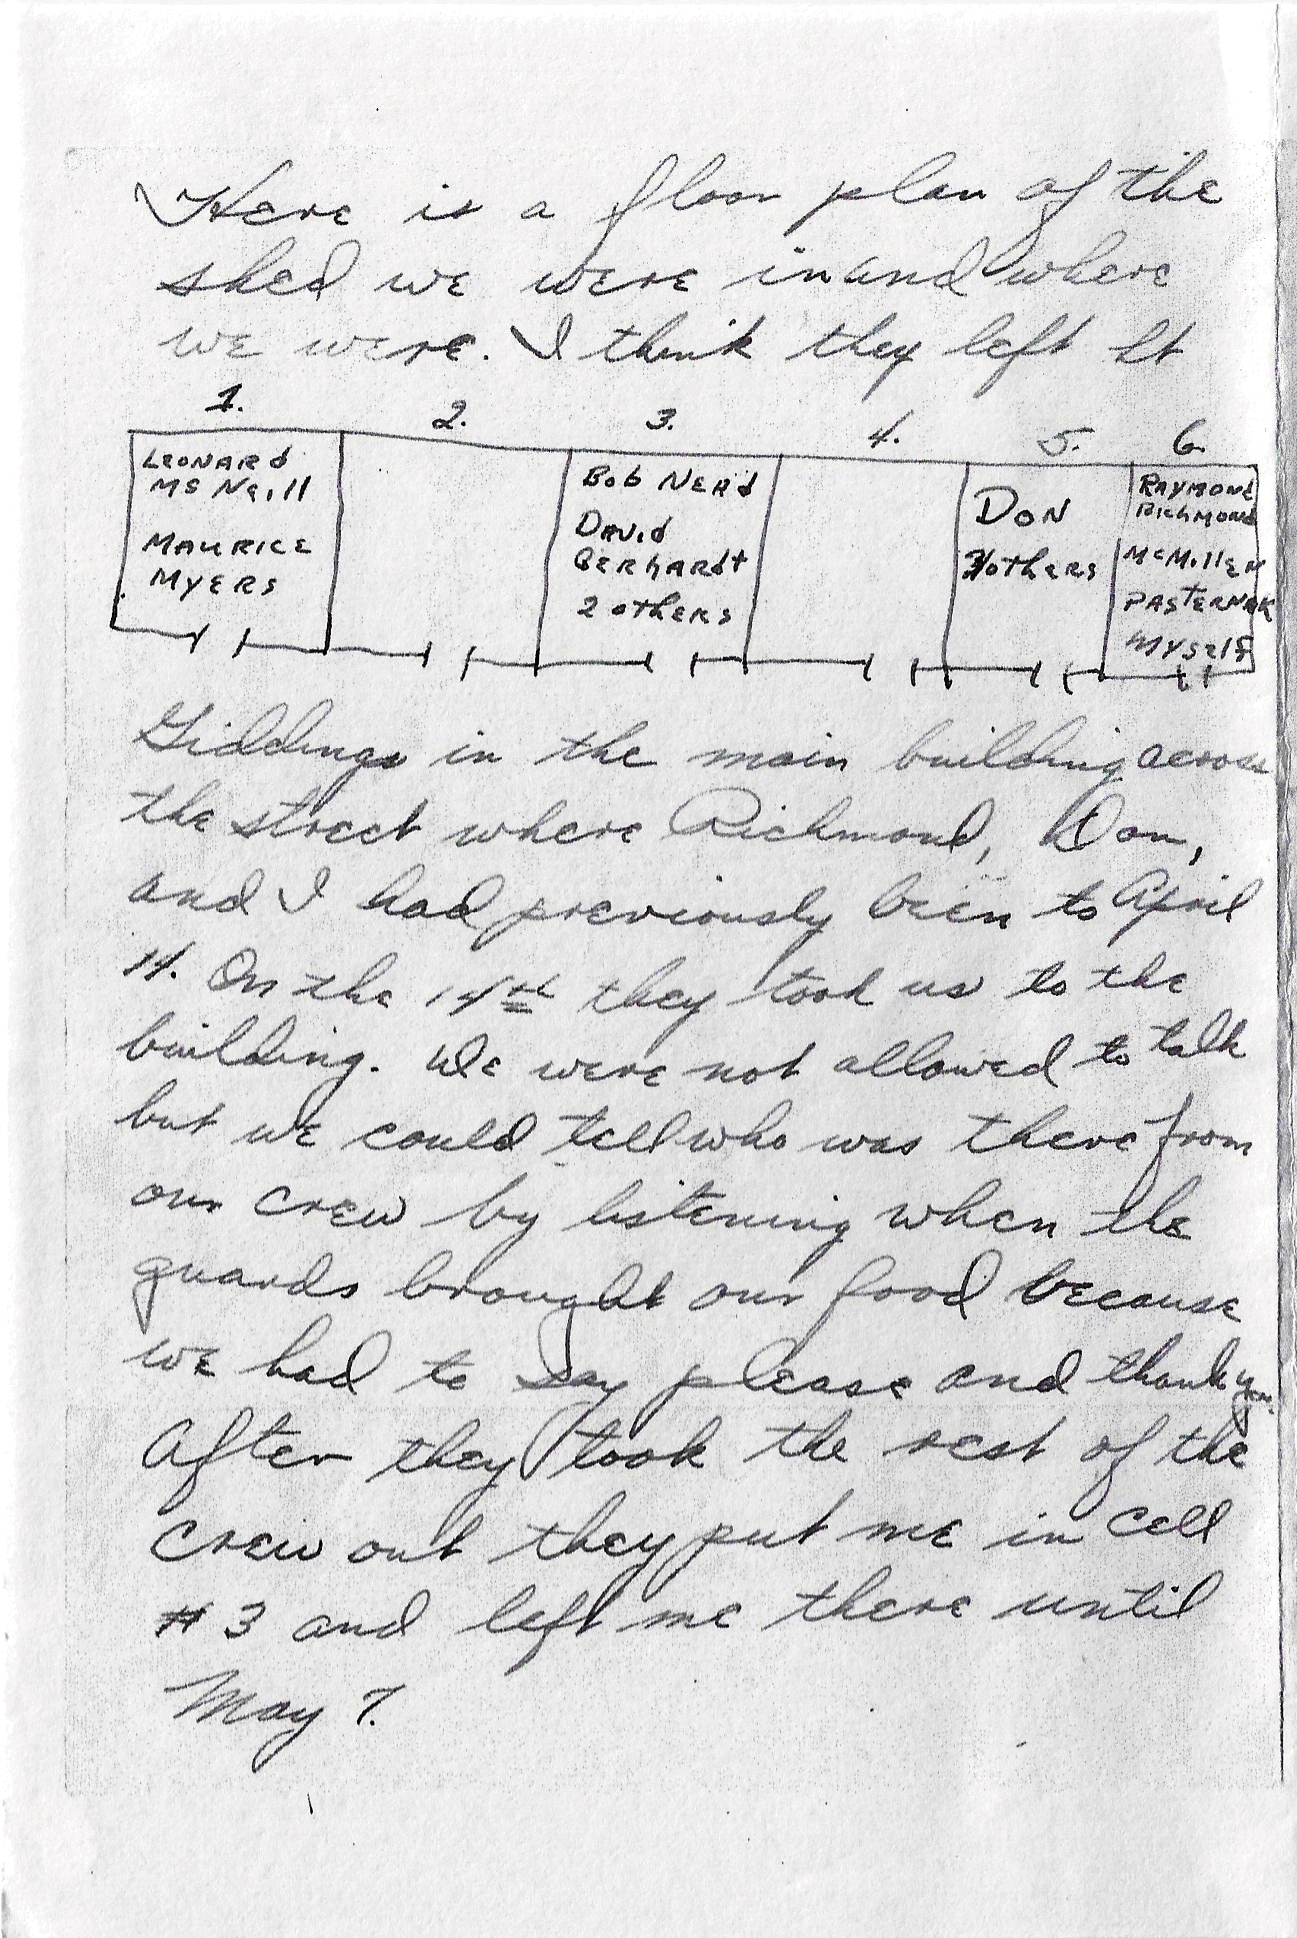 Here is a floor plan of the
shed we were in and where
we were. I think they left Lt
1. 2. 3. 4. 5. 6.
LEONARd
MS NEill
MAURICE
MYERS
Bob NEAd
DAVid
GERhARdt
2 othERS
DON
3 othERS
RAYMONd
RICHMONd
McMillEN
PASTERNAK
MYSElf
Giddings in the main building across
the street where Richmond, Don,
and I had previously been to April
14. On the 14th they took us to the
building. We were not allowed to talk
but we could tell who was there from
our crew by listening when the
guards brought our food because
we had to say please and thank you.
After they took the rest of the
crew out they put me in cell
#3 and left me there until
May 7.